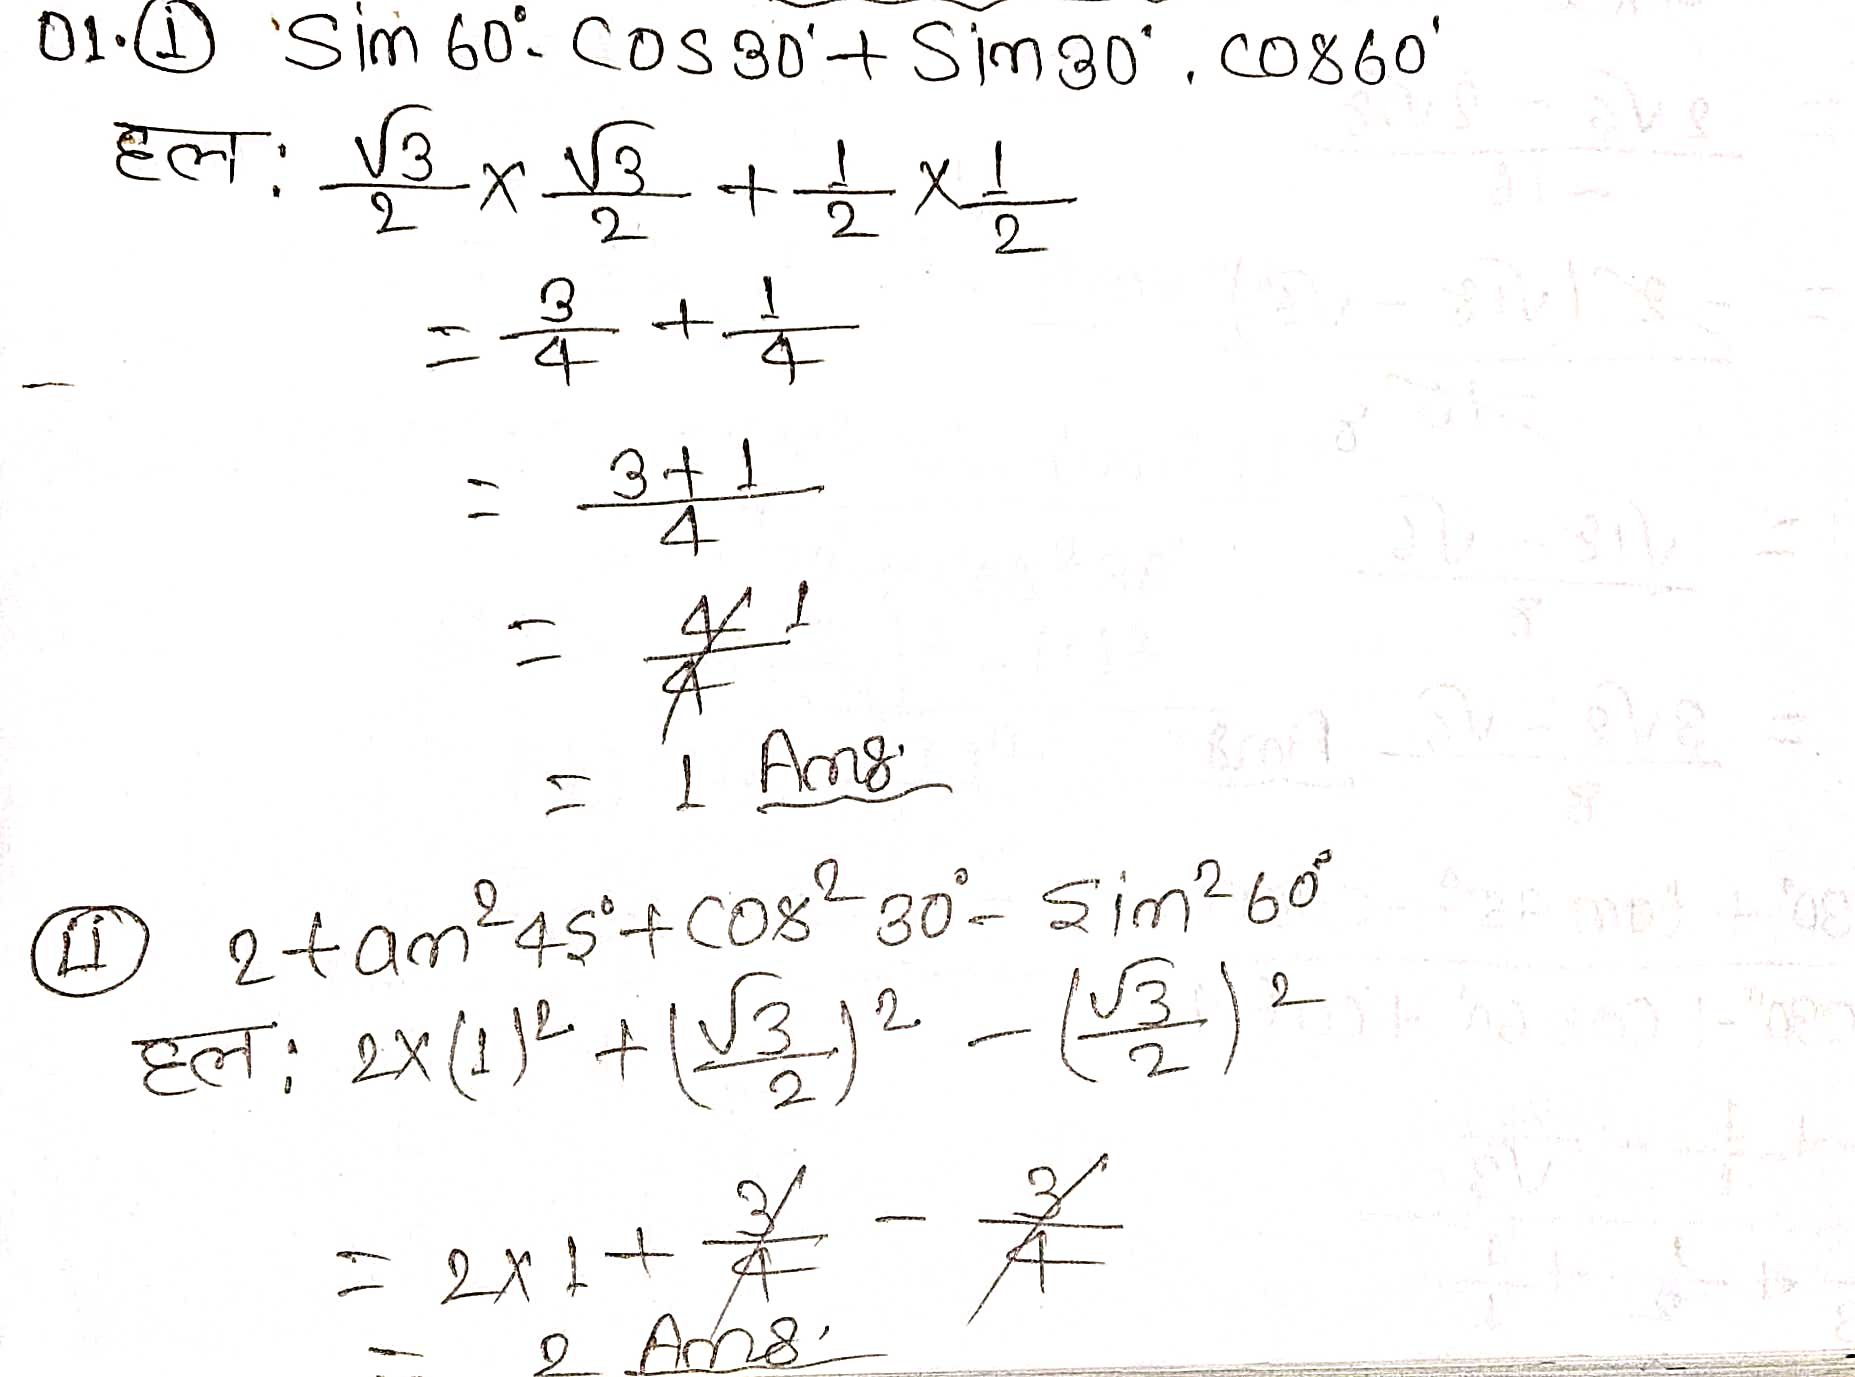 01. (i) Sin 60° . Cos 30° + Sin 30° . cos 60°
हल: √3/2 × √3/2 + 1/2 × 1/2
= 3/4 + 1/4
= 3+1/4
= 4/4 1
= 1 Ans.
(ii) 2 tan² 45° + cos² 30° - Sin² 60°
हल: 2×(1)² + (√3/2)² - (√3/2)²
= 2×1 + 3/4 - 3/4
= 2 Ans.